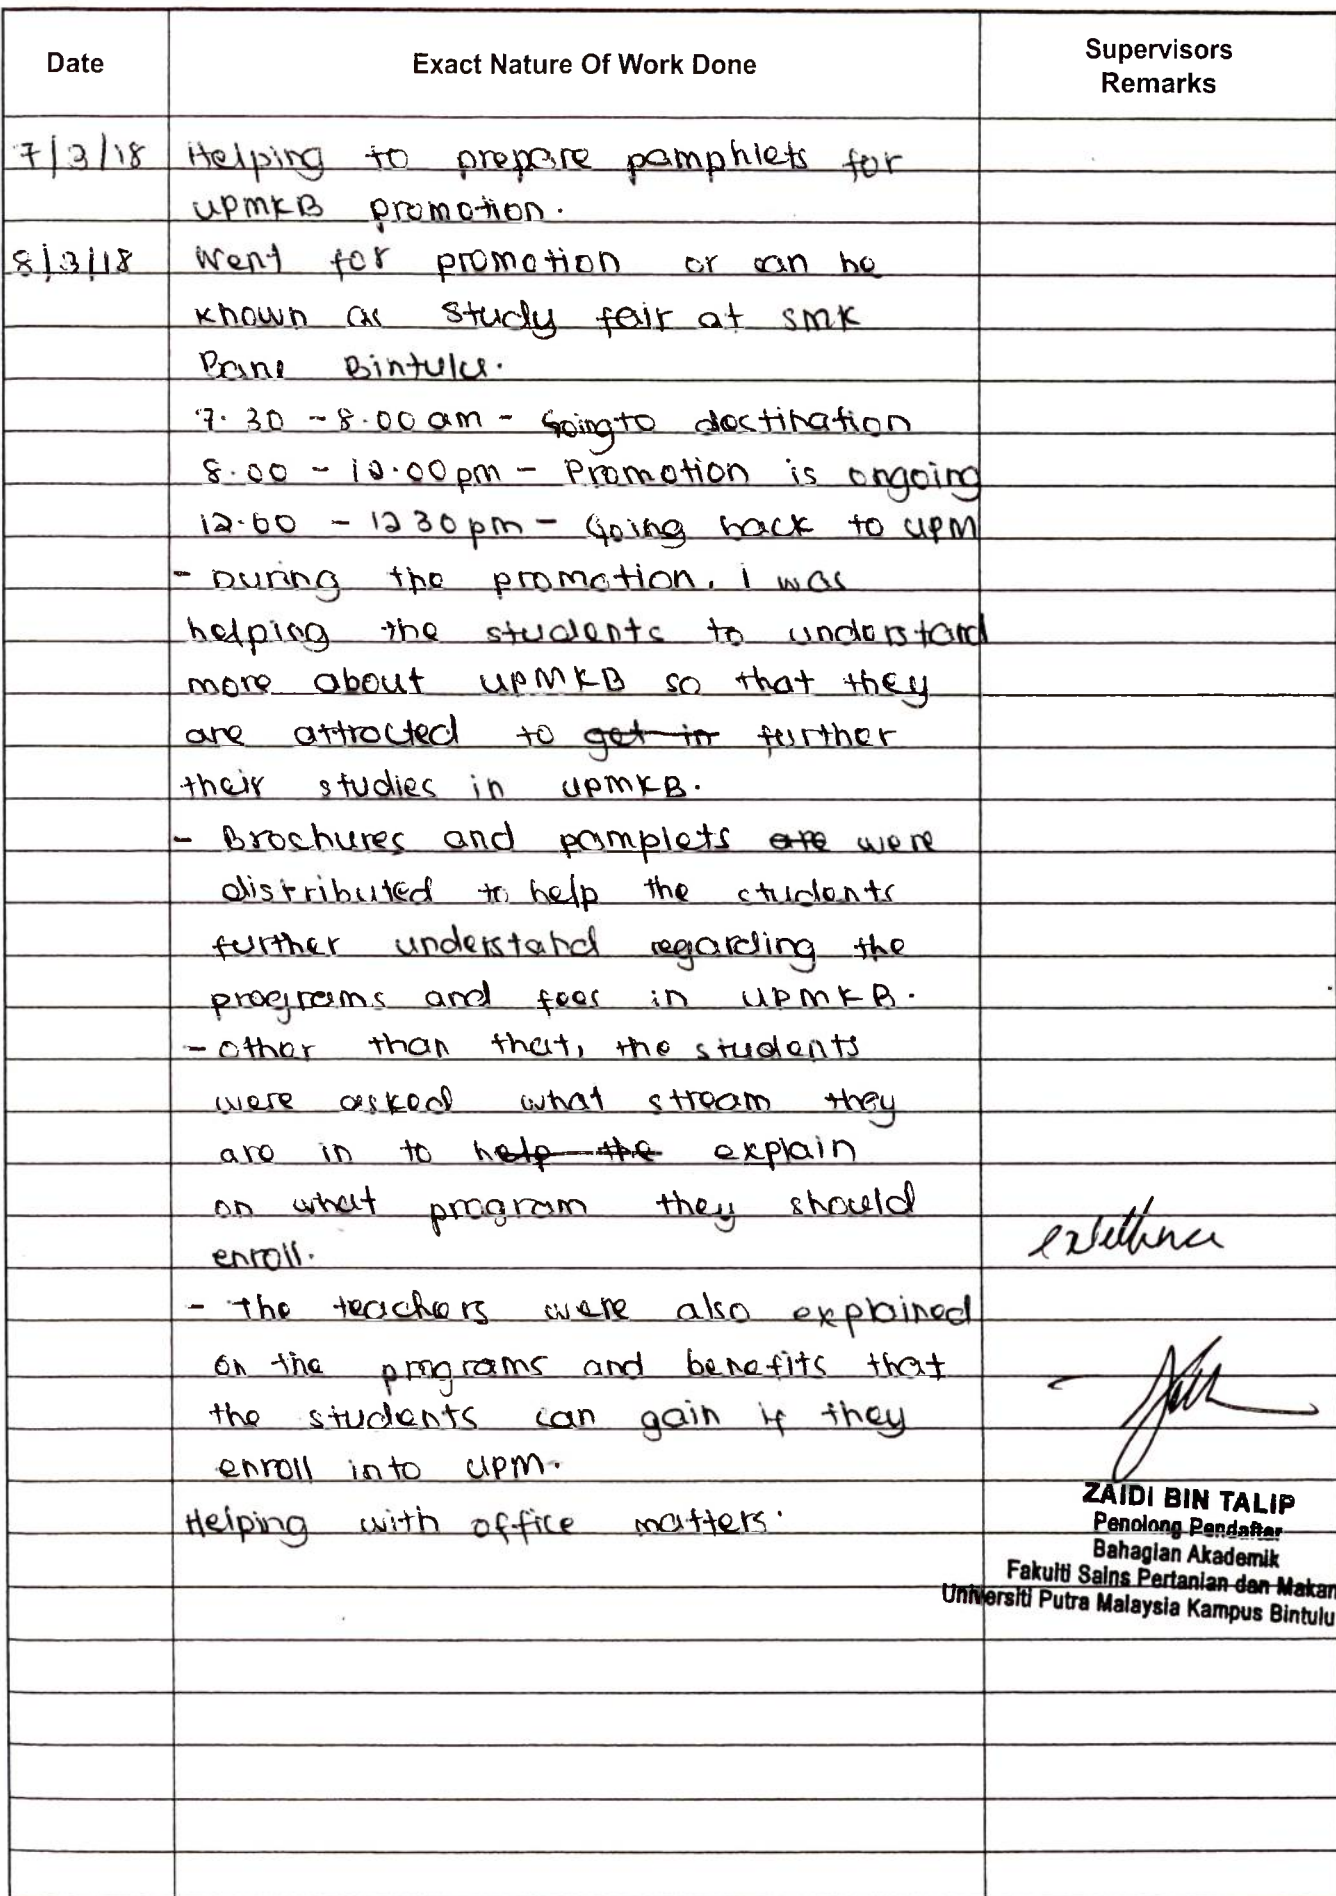 Date
Exact Nature Of Work Done
Supervisors
Remarks
7/3/18 Helping to prepare pamphlets for
UPMKB promotion.
8/3/18 Went for promotion or can be
known as study fair at SMK
Bintulu.
7.30 - 8.00 am - Going to destination
8.00 - 12.00 pm - Promotion is ongoing
12.00 - 12 30 pm - Going back to UPM
- During the promotion, i was
helping the students to understand
more about UPMKB so that they
are attracted to get in further
their studies in UPMKB.
- Brochures and pamplets are were
distributed to help the students
further understand regarding the
programs and fees in UPMKB.
- other than that, the students
were asked what stream they
are in to help the explain
on what program they should
enroll.
- the teachers were also explained
on the programs and benefits that
the students can gain if they
enroll into UPM.
Helping with office matters.
ZAIDI BIN TALIP
Penolong Pendaftar
Bahagian Akademik
Fakulti Sains Pertanian dan Makan
Universiti Putra Malaysia Kampus Bintulu